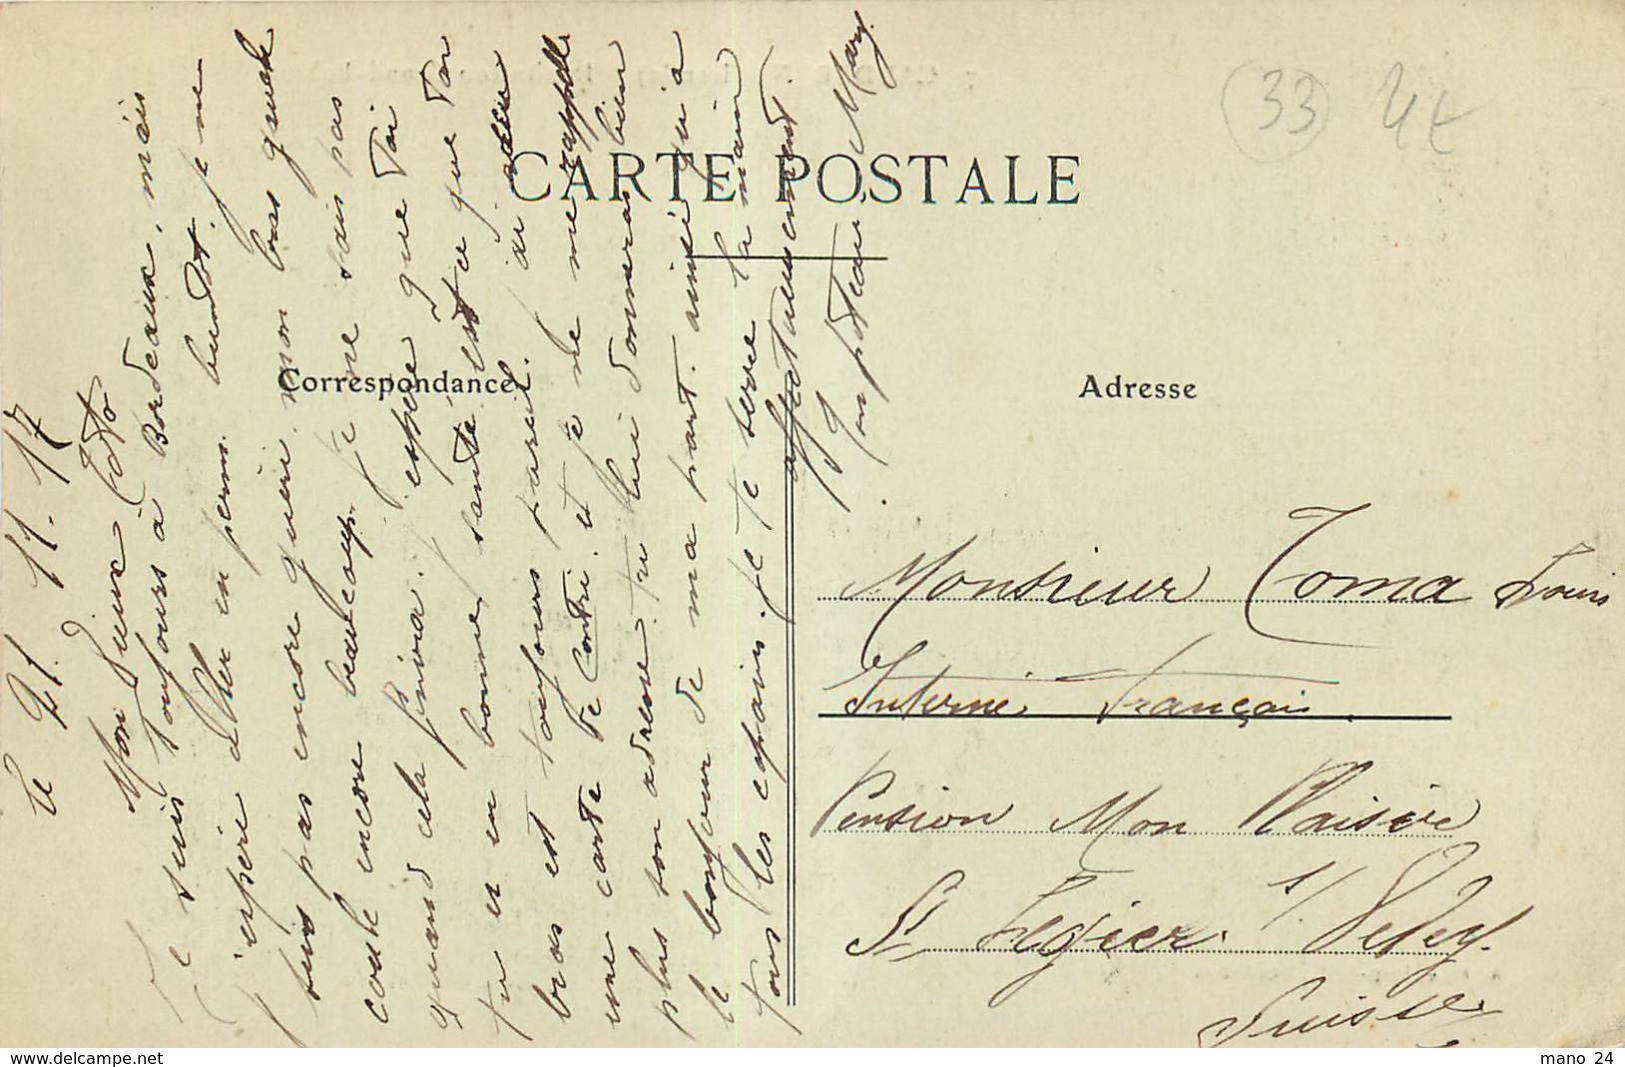 33 4t
CARTE POSTALE
Correspondance
Adresse
Le 21. 11. 17
Mon vieux Toto
Je suis toujours à Bordeaux, mais
j'espère aller en perm. bientôt. je ne
suis pas encore guéri. mon bras gauche
coule encore beaucoup. Je ne sais pas
quand cela finira. J'espère que toi
tu es en bonne santé est ce que ton
bras est toujours pareil. j'ai
une carte de Contri. et je ne me rappelle
plus son adresse. tu lui donneras bien
le bonjour de ma part. ainsi qu'à
tous les copains. Je te serre la main
affectueusement.
Ton poteau Mary
Monsieur Toma Louis
Interné Français.
Pension Mon Plaisire
St Légier s/ Vevey.
Suisse
www.delcampe.net
mano 24